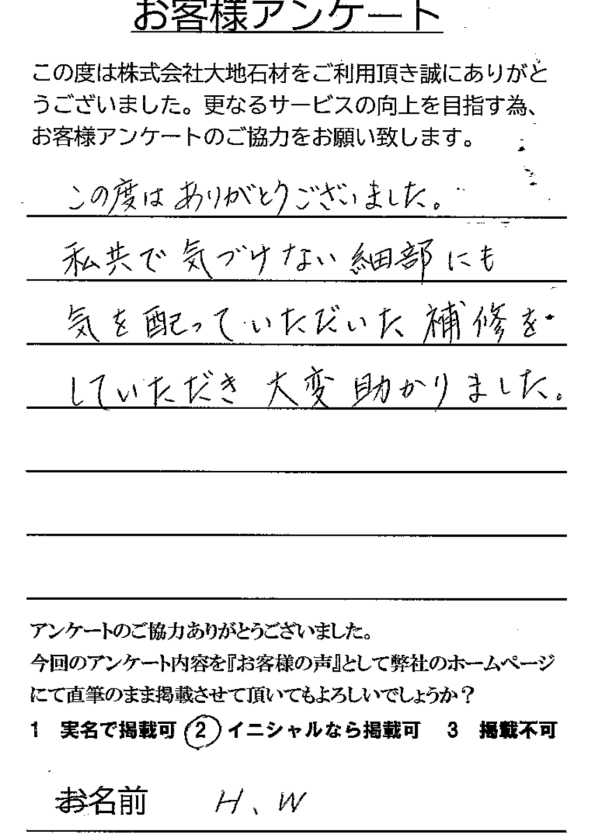 お客様アンケート
この度は株式会社大地石材をご利用頂き誠にありがと
うございました。更なるサービスの向上を目指す為、
お客様アンケートのご協力をお願い致します。
この度はありがとうございました。
私共で気づけない細部にも
気を配っていただいた補修を
していただき大変助かりました。
アンケートのご協力ありがとうございました。
今回のアンケート内容を『お客様の声』として弊社のホームページ
にて直筆のまま掲載させて頂いてもよろしいでしょうか？
1 実名で掲載可 2 イニシャルなら掲載可 3 掲載不可
お名前 H、W